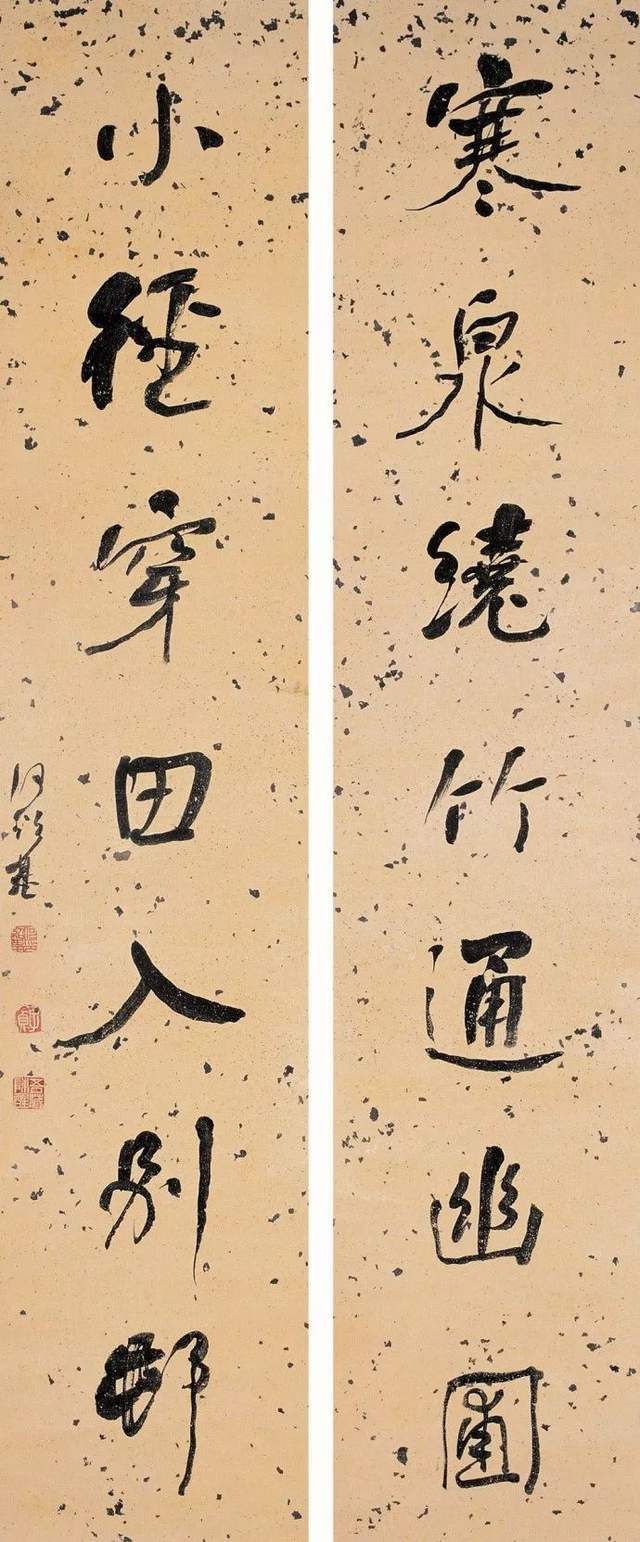 寒泉繞竹通幽圃
小徑穿田入別邨
何紹基